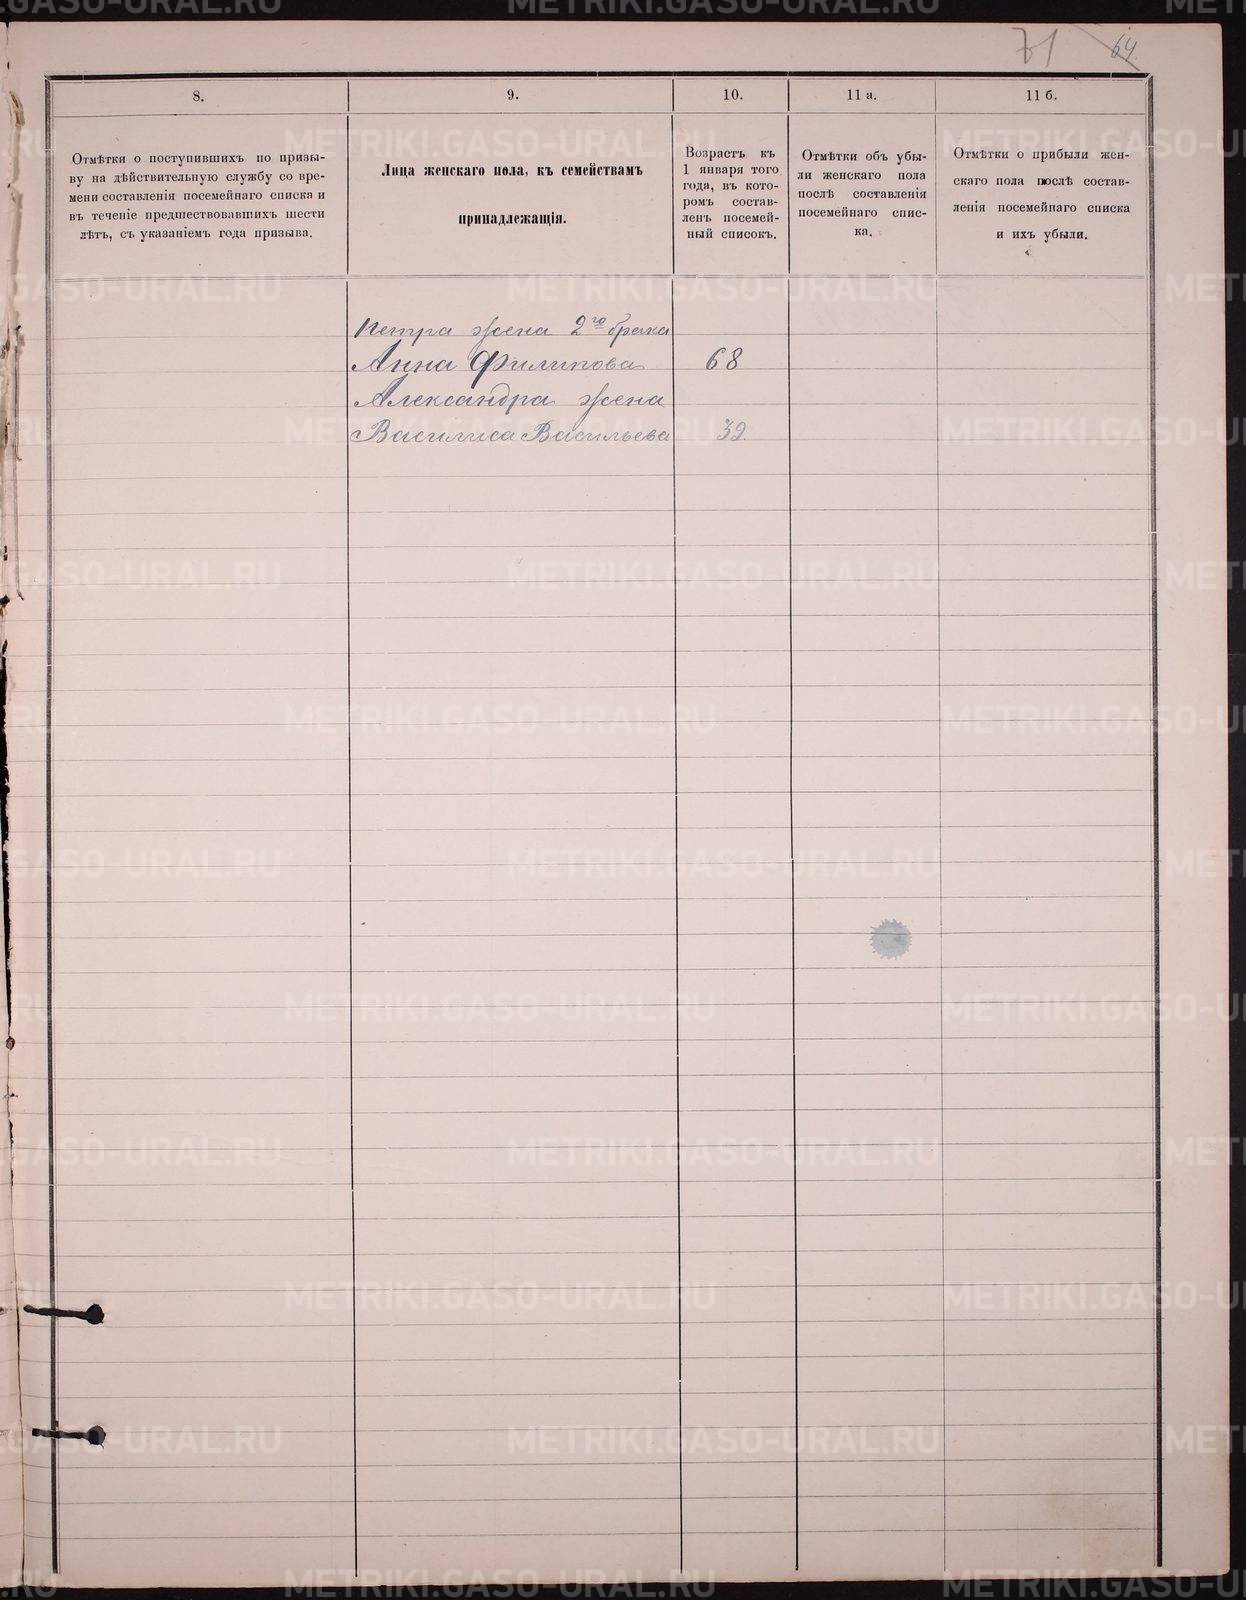 71 64.
8.
9.
10.
11 а.
11 б.
Отмѣтки о поступившихъ по призы-
ву на дѣйствительную службу со вре-
мени составленія посемейнаго списка и
въ теченіе предшествовавшихъ шести
лѣтъ, съ указаніемъ года призыва.
Лица женскаго пола, къ семействамъ
принадлежащія.
Возрастъ къ
1 января того
года, въ кото-
ромъ состав-
ленъ посемей-
ный списокъ.
Отмѣтки объ убы-
ли женскаго пола
послѣ составленія
посемейнаго спис-
ка.
Отмѣтки о прибыли жен-
скаго пола послѣ состав-
ленія посемейнаго списка
и ихъ убыли.
Петра жена 2го брака
Анна Филипова 68
Александра жена
Василиса Васильева 39.
METRIKI.GASO-URAL.RU